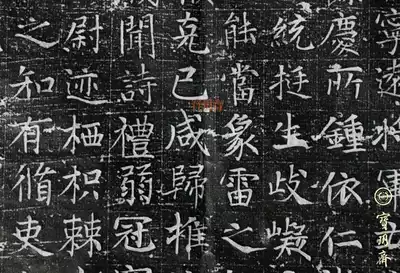 寧遠將軍五
慶所鍾依仁
統挺生歧嶷
能當象雷之
已咸歸推
聞詩禮弱冠
尉迹栖枳棘
之知有脩吏
寶玥齋